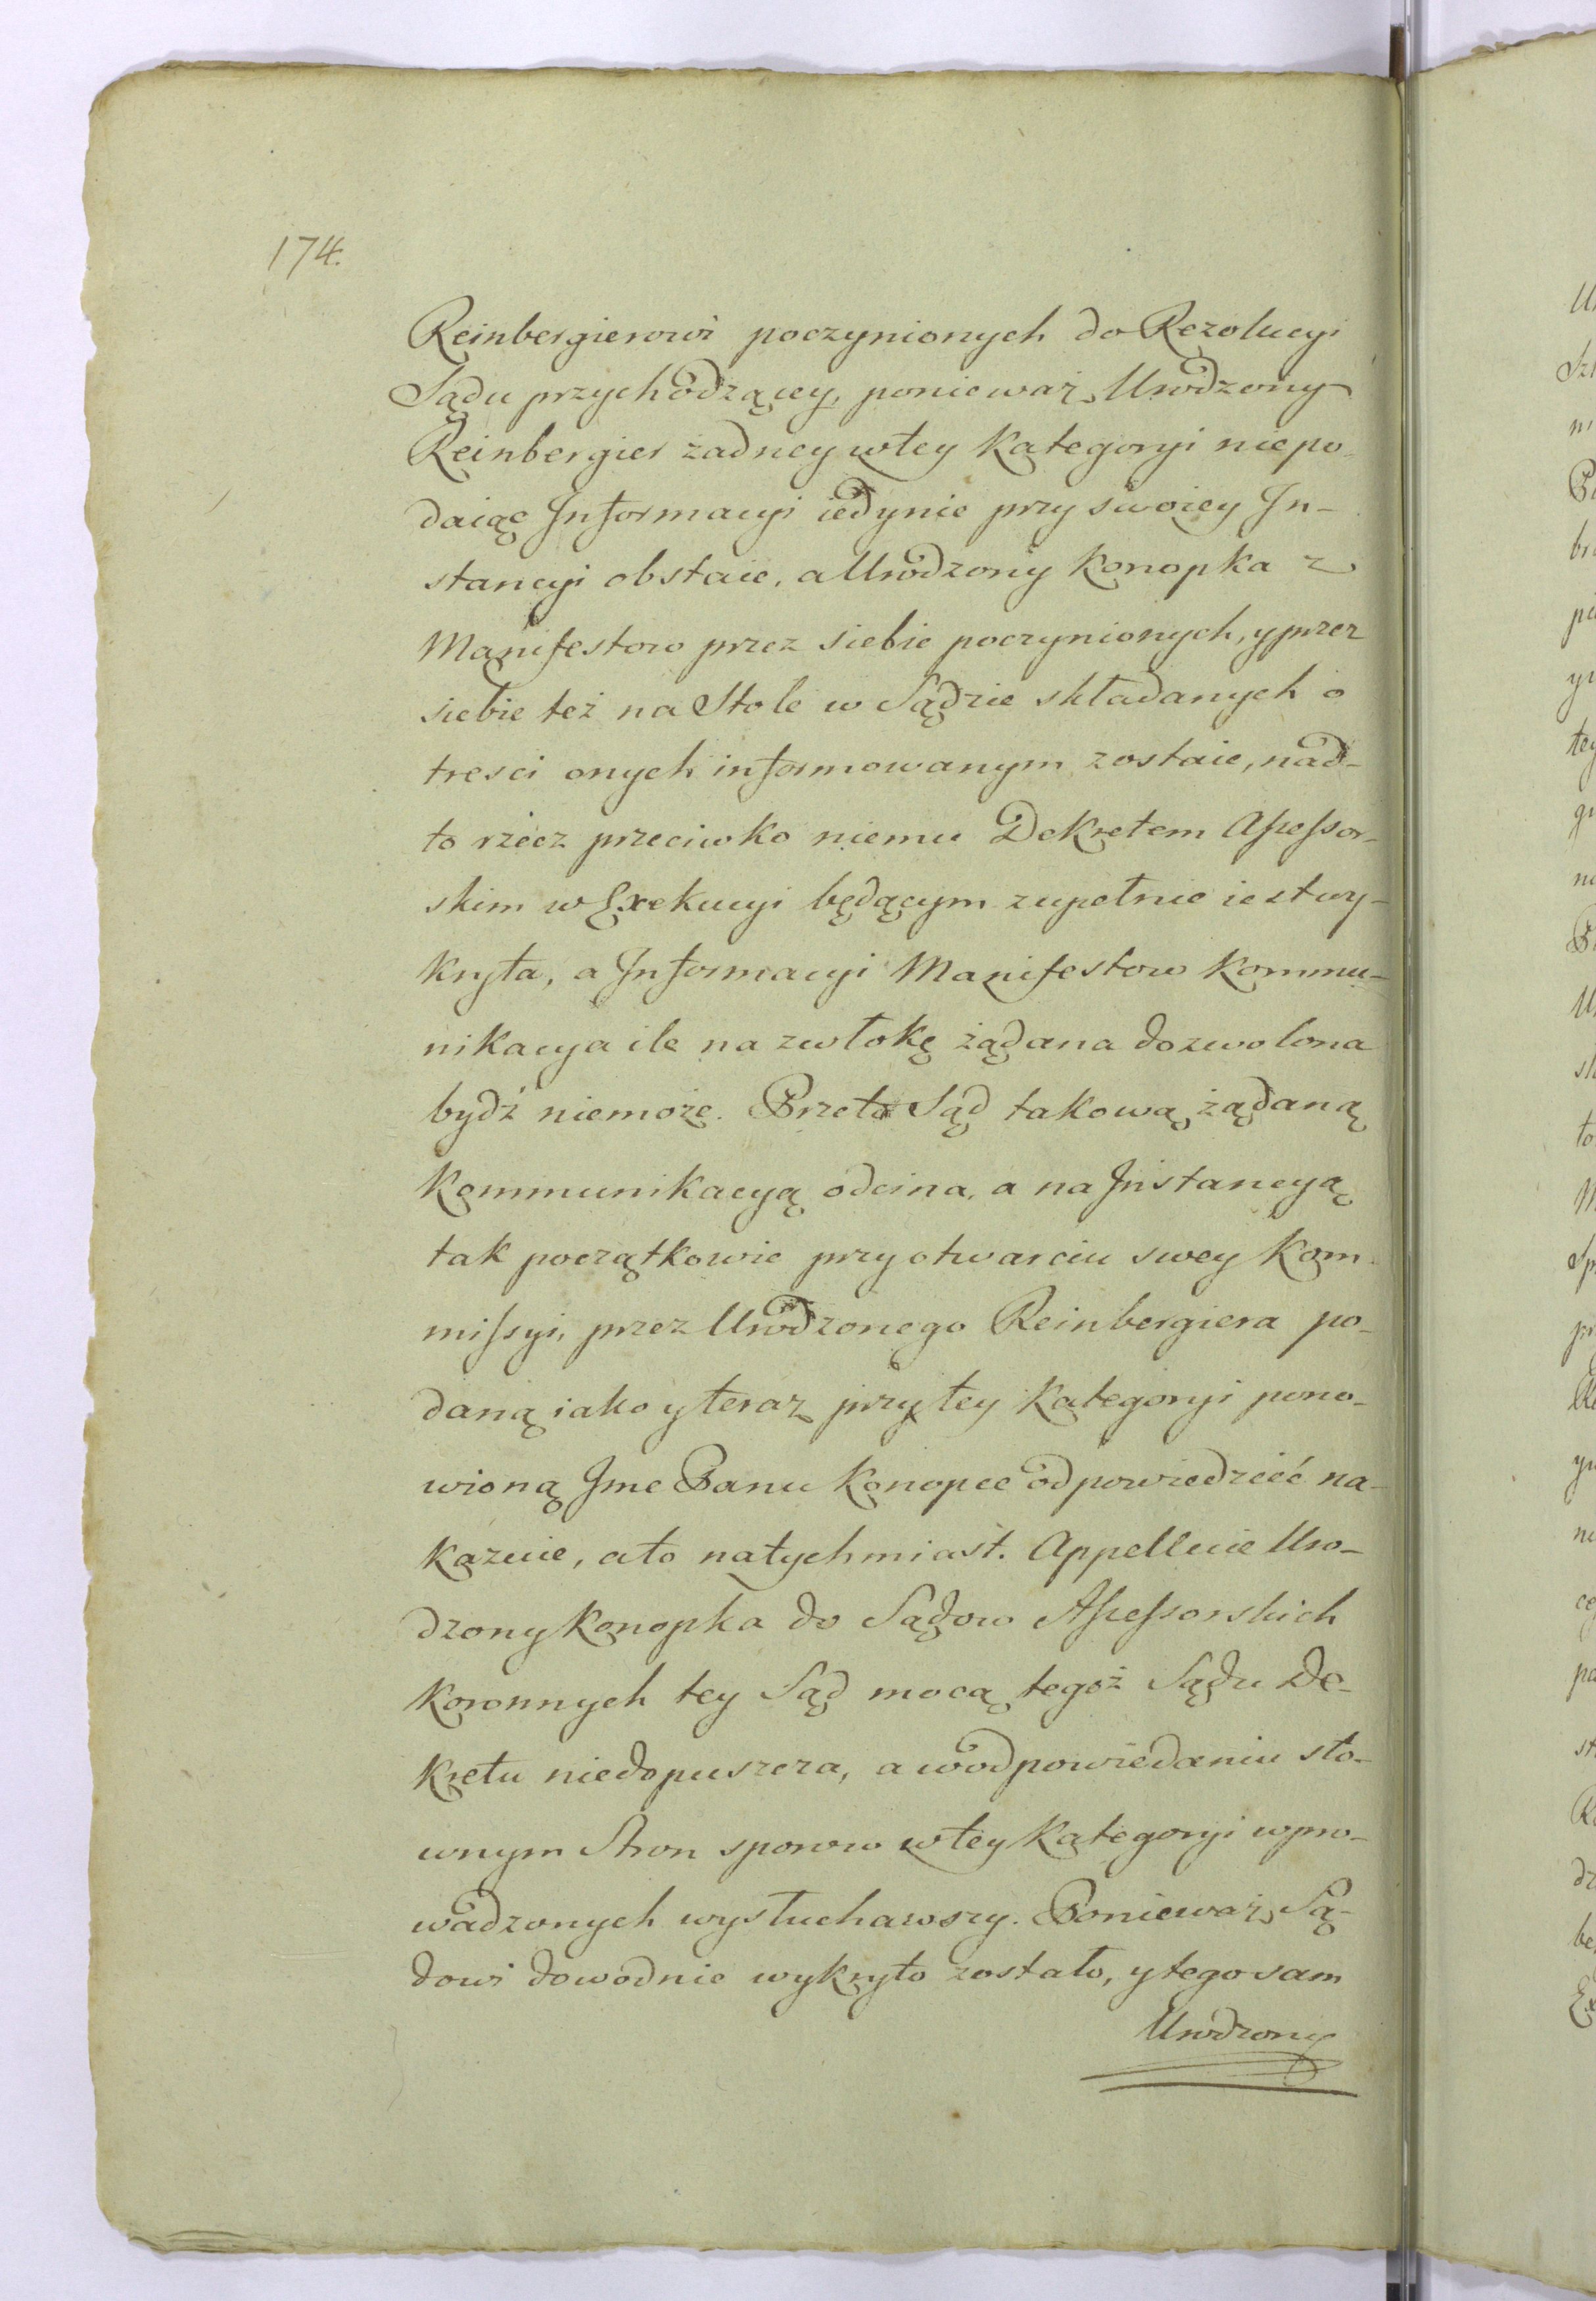 174.
Reinbergierowi poczynionych do Rezolucyi
Sądu przychodzącey, ponieważ Urodzony
Reinbergier żadney wtey Kategoryi niepo-
daiąc Informacyi iedynie przy swoiey In-
stancyi obstaie, a Urodzony Konopka z
Manifestow przez siebie poczynionych, y przez
siebie też na Stole w Sądzie składanych o
tresci onych informowanym zostaie, nad-
to rzecz przeciwko niemu Dekretem Assessor-
skim w Exekucyi będącym zupełnie iest wy-
kryta, a Informacyi Manifestow Kommu-
nikacya ile na zwłokę żądana dozwolona
bydź niemoże. Przeto Sąd takową żądaną
Kommunikacyą odcina, a na Instancyą
tak początkowie przy otwarciu swey Kom-
missyi, przez Urodzonego Reinbergiera po-
daną iako y teraz przy tey Kategoryi pono-
wioną Jmc Panu Konopce odpowiedzieć na-
kazuie, ato natychmiast. Appelluie Uro-
dzony Konopka do Sądow Assessorskich
Koronnych tey Sąd mocą tegoż Sądu De-
kretu niedopuszcza, a wodpowiedaniu sto-
wnym Stron sporow wtey Kategoryi wpro-
wadzonych wysłuchawszy. Ponieważ Są-
dowi dowodnie wykryto zostało, y tego sam
Urodzony